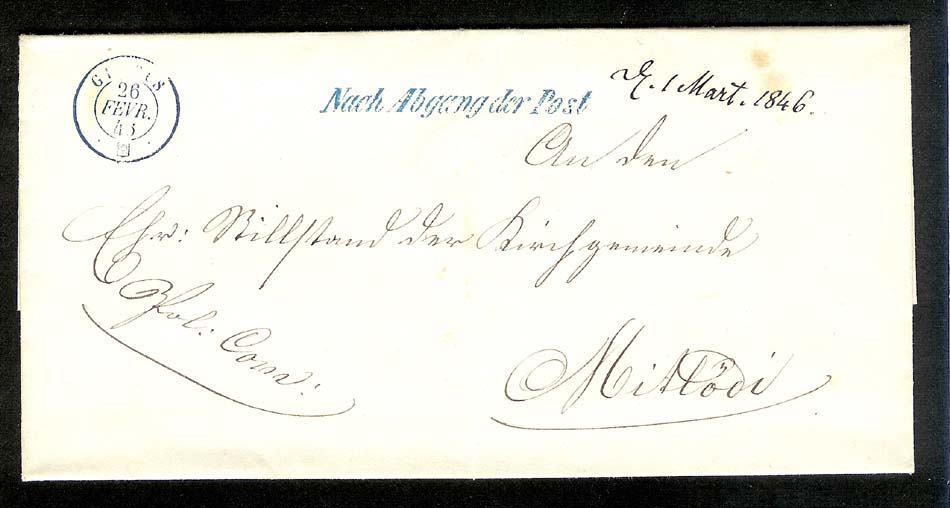 GLARUS
26
FEVR.
46
Nach Abgang der Post
E. 1 Mart. 1846.
An den
Ehr: Stillstand der Kirchgemeinde
Pol: Com:
Mitlödi